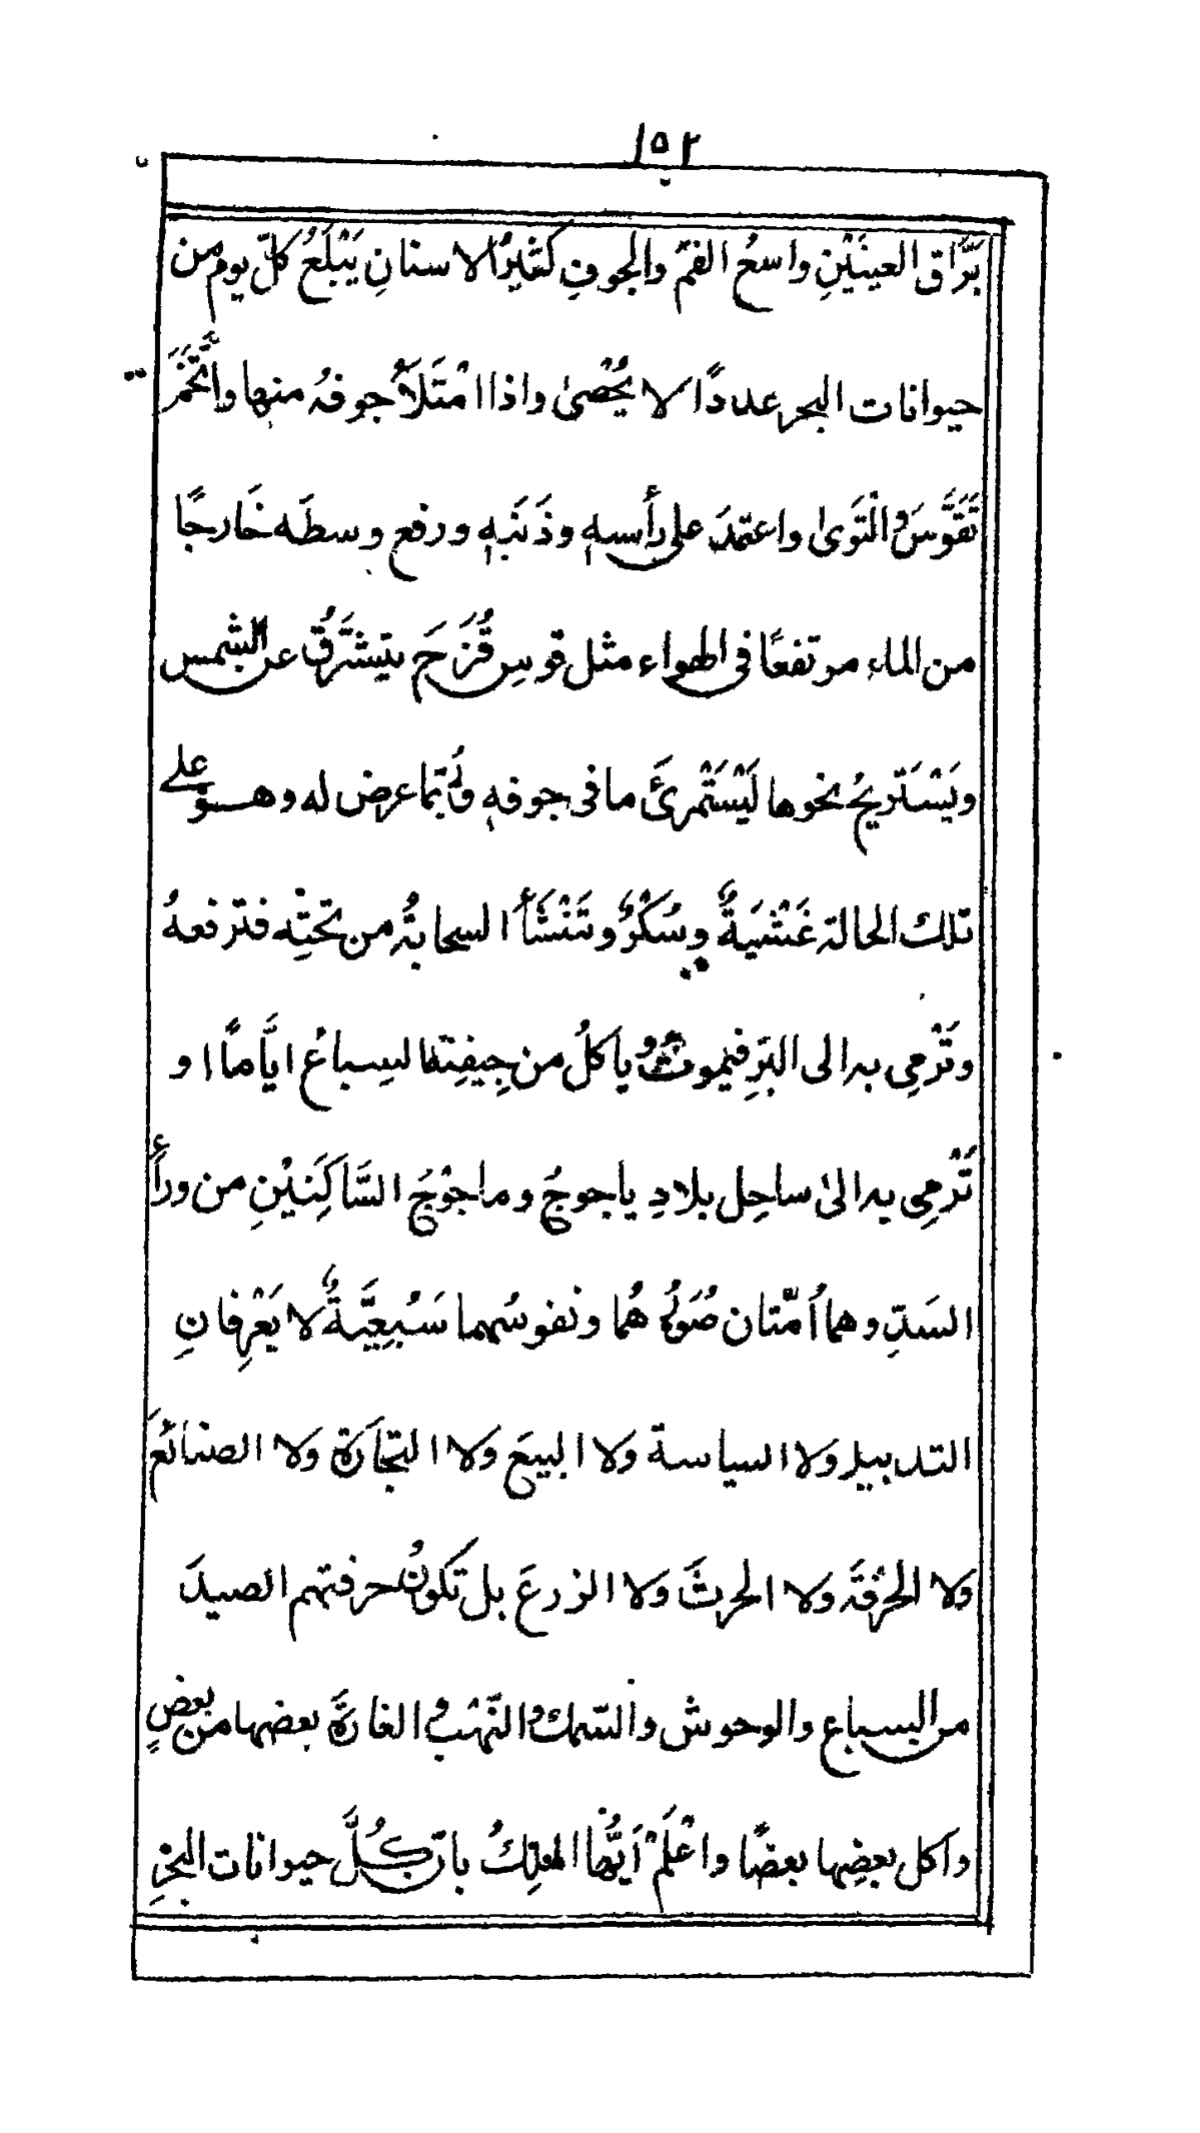 ١٥٢
بَرَّاق العينَيْنِ واسعُ الفمّ والجوفِ كثيرُ الاسنانِ يَبْلَعُ كلّ يوم من
حيوانات البحر عددًا لا يُحْصىٰ واذا امْتَلَأَ جوفهُ منها واتَّخَمَ
تَقَوَّسَ والْتَوىٰ واعتمدَ على رأسهٖ وذَنَبهٖ ورفع وسطَه خَارجًا
من الماء مرتفعًا فى الهواء مثل قوسِ قُزَحَ يتَشَرَّقُ عن الشمس
ويَسْتَريحُ نحوها لَيَسْتَمْرئَ ما فى جوفهٖ وربّما عرض له وهو على
تلك الحالة غَشْيَةٌ وسُكْرٌ وتَنْشَأُ السحابةُ من تحتِه فترفعهُ
وتَرْمِى به الى البَرِّ فيموتُ ويأكلُ من جِيفتِها السِباعُ ايَّامًا او
تَرْمِى به الىٰ ساحِل بلادِ ياجوجُ وماجوْجَ السَّاكِنَيْنِ من ورأ
السَدِّ وهما أُمّتان صُوَرُهُما ونفوسُهما سَبُعِيَّةٌ لا يَعْرِفانِ
التدبير ولا السياسة ولا البيعَ ولا التجارةَ ولا الصنائعَ
ولا الحرْفَةَ ولا الحرثَ ولا الزرعَ بل تكونُ حرفتهم الصيدَ
من السباع والوحوش والسّمك والنَّهْبُ والغارةَ بعضها من بعضٍ
واكل بعضِها بعضًا واعْلَمْ أَيُّها الملِكُ بانّ كُلَّ حيوانات البحرِ